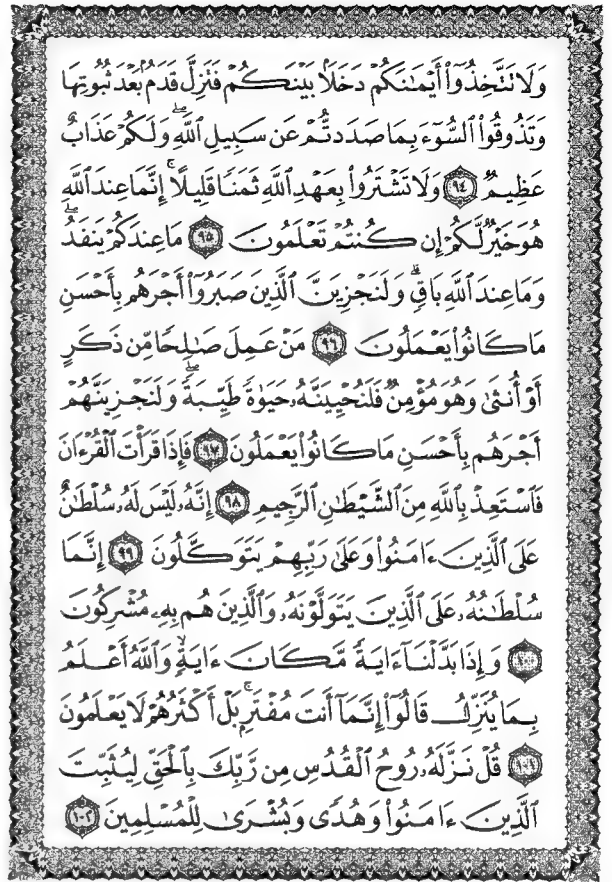 وَلَا تَتَّخِذُوٓا۟ أَيْمَـٰنَكُمْ دَخَلًۢا بَيْنَكُمْ فَتَزِلَّ قَدَمٌۢ بَعْدَ ثُبُوتِهَا
وَتَذُوقُوا۟ ٱلسُّوٓءَ بِمَا صَدَدتُّمْ عَن سَبِيلِ ٱللَّهِ ۖ وَلَكُمْ عَذَابٌ
عَظِيمٌ ٩٤ وَلَا تَشْتَرُوا۟ بِعَهْدِ ٱللَّهِ ثَمَنًا قَلِيلًا ۚ إِنَّمَا عِندَ ٱللَّهِ
هُوَ خَيْرٌ لَّكُمْ إِن كُنتُمْ تَعْلَمُونَ ٩٥ مَا عِندَكُمْ يَنفَدُ ۖ
وَمَا عِندَ ٱللَّهِ بَاقٍ ۗ وَلَنَجْزِيَنَّ ٱلَّذِينَ صَبَرُوٓا۟ أَجْرَهُم بِأَحْسَنِ
مَا كَانُوا۟ يَعْمَلُونَ ٩٦ مَنْ عَمِلَ صَـٰلِحًا مِّن ذَكَرٍ
أَوْ أُنثَىٰ وَهُوَ مُؤْمِنٌ فَلَنُحْيِيَنَّهُۥ حَيَوٰةً طَيِّبَةً ۖ وَلَنَجْزِيَنَّهُمْ
أَجْرَهُم بِأَحْسَنِ مَا كَانُوا۟ يَعْمَلُونَ ٩٧ فَإِذَا قَرَأْتَ ٱلْقُرْءَانَ
فَٱسْتَعِذْ بِٱللَّهِ مِنَ ٱلشَّيْطَـٰنِ ٱلرَّجِيمِ ٩٨ إِنَّهُۥ لَيْسَ لَهُۥ سُلْطَـٰنٌ
عَلَى ٱلَّذِينَ ءَامَنُوا۟ وَعَلَىٰ رَبِّهِمْ يَتَوَكَّلُونَ ٩٩ إِنَّمَا
سُلْطَـٰنُهُۥ عَلَى ٱلَّذِينَ يَتَوَلَّوْنَهُۥ وَٱلَّذِينَ هُم بِهِۦ مُشْرِكُونَ
١٠٠ وَإِذَا بَدَّلْنَآ ءَايَةً مَّكَانَ ءَايَةٍ ۙ وَٱللَّهُ أَعْلَمُ
بِمَا يُنَزِّلُ قَالُوٓا۟ إِنَّمَآ أَنتَ مُفْتَرٍۭ ۚ بَلْ أَكْثَرُهُمْ لَا يَعْلَمُونَ
١٠١ قُلْ نَزَّلَهُۥ رُوحُ ٱلْقُدُسِ مِن رَّبِّكَ بِٱلْحَقِّ لِيُثَبِّتَ
ٱلَّذِينَ ءَامَنُوا۟ وَهُدًى وَبُشْرَىٰ لِلْمُسْلِمِينَ ١٠٢